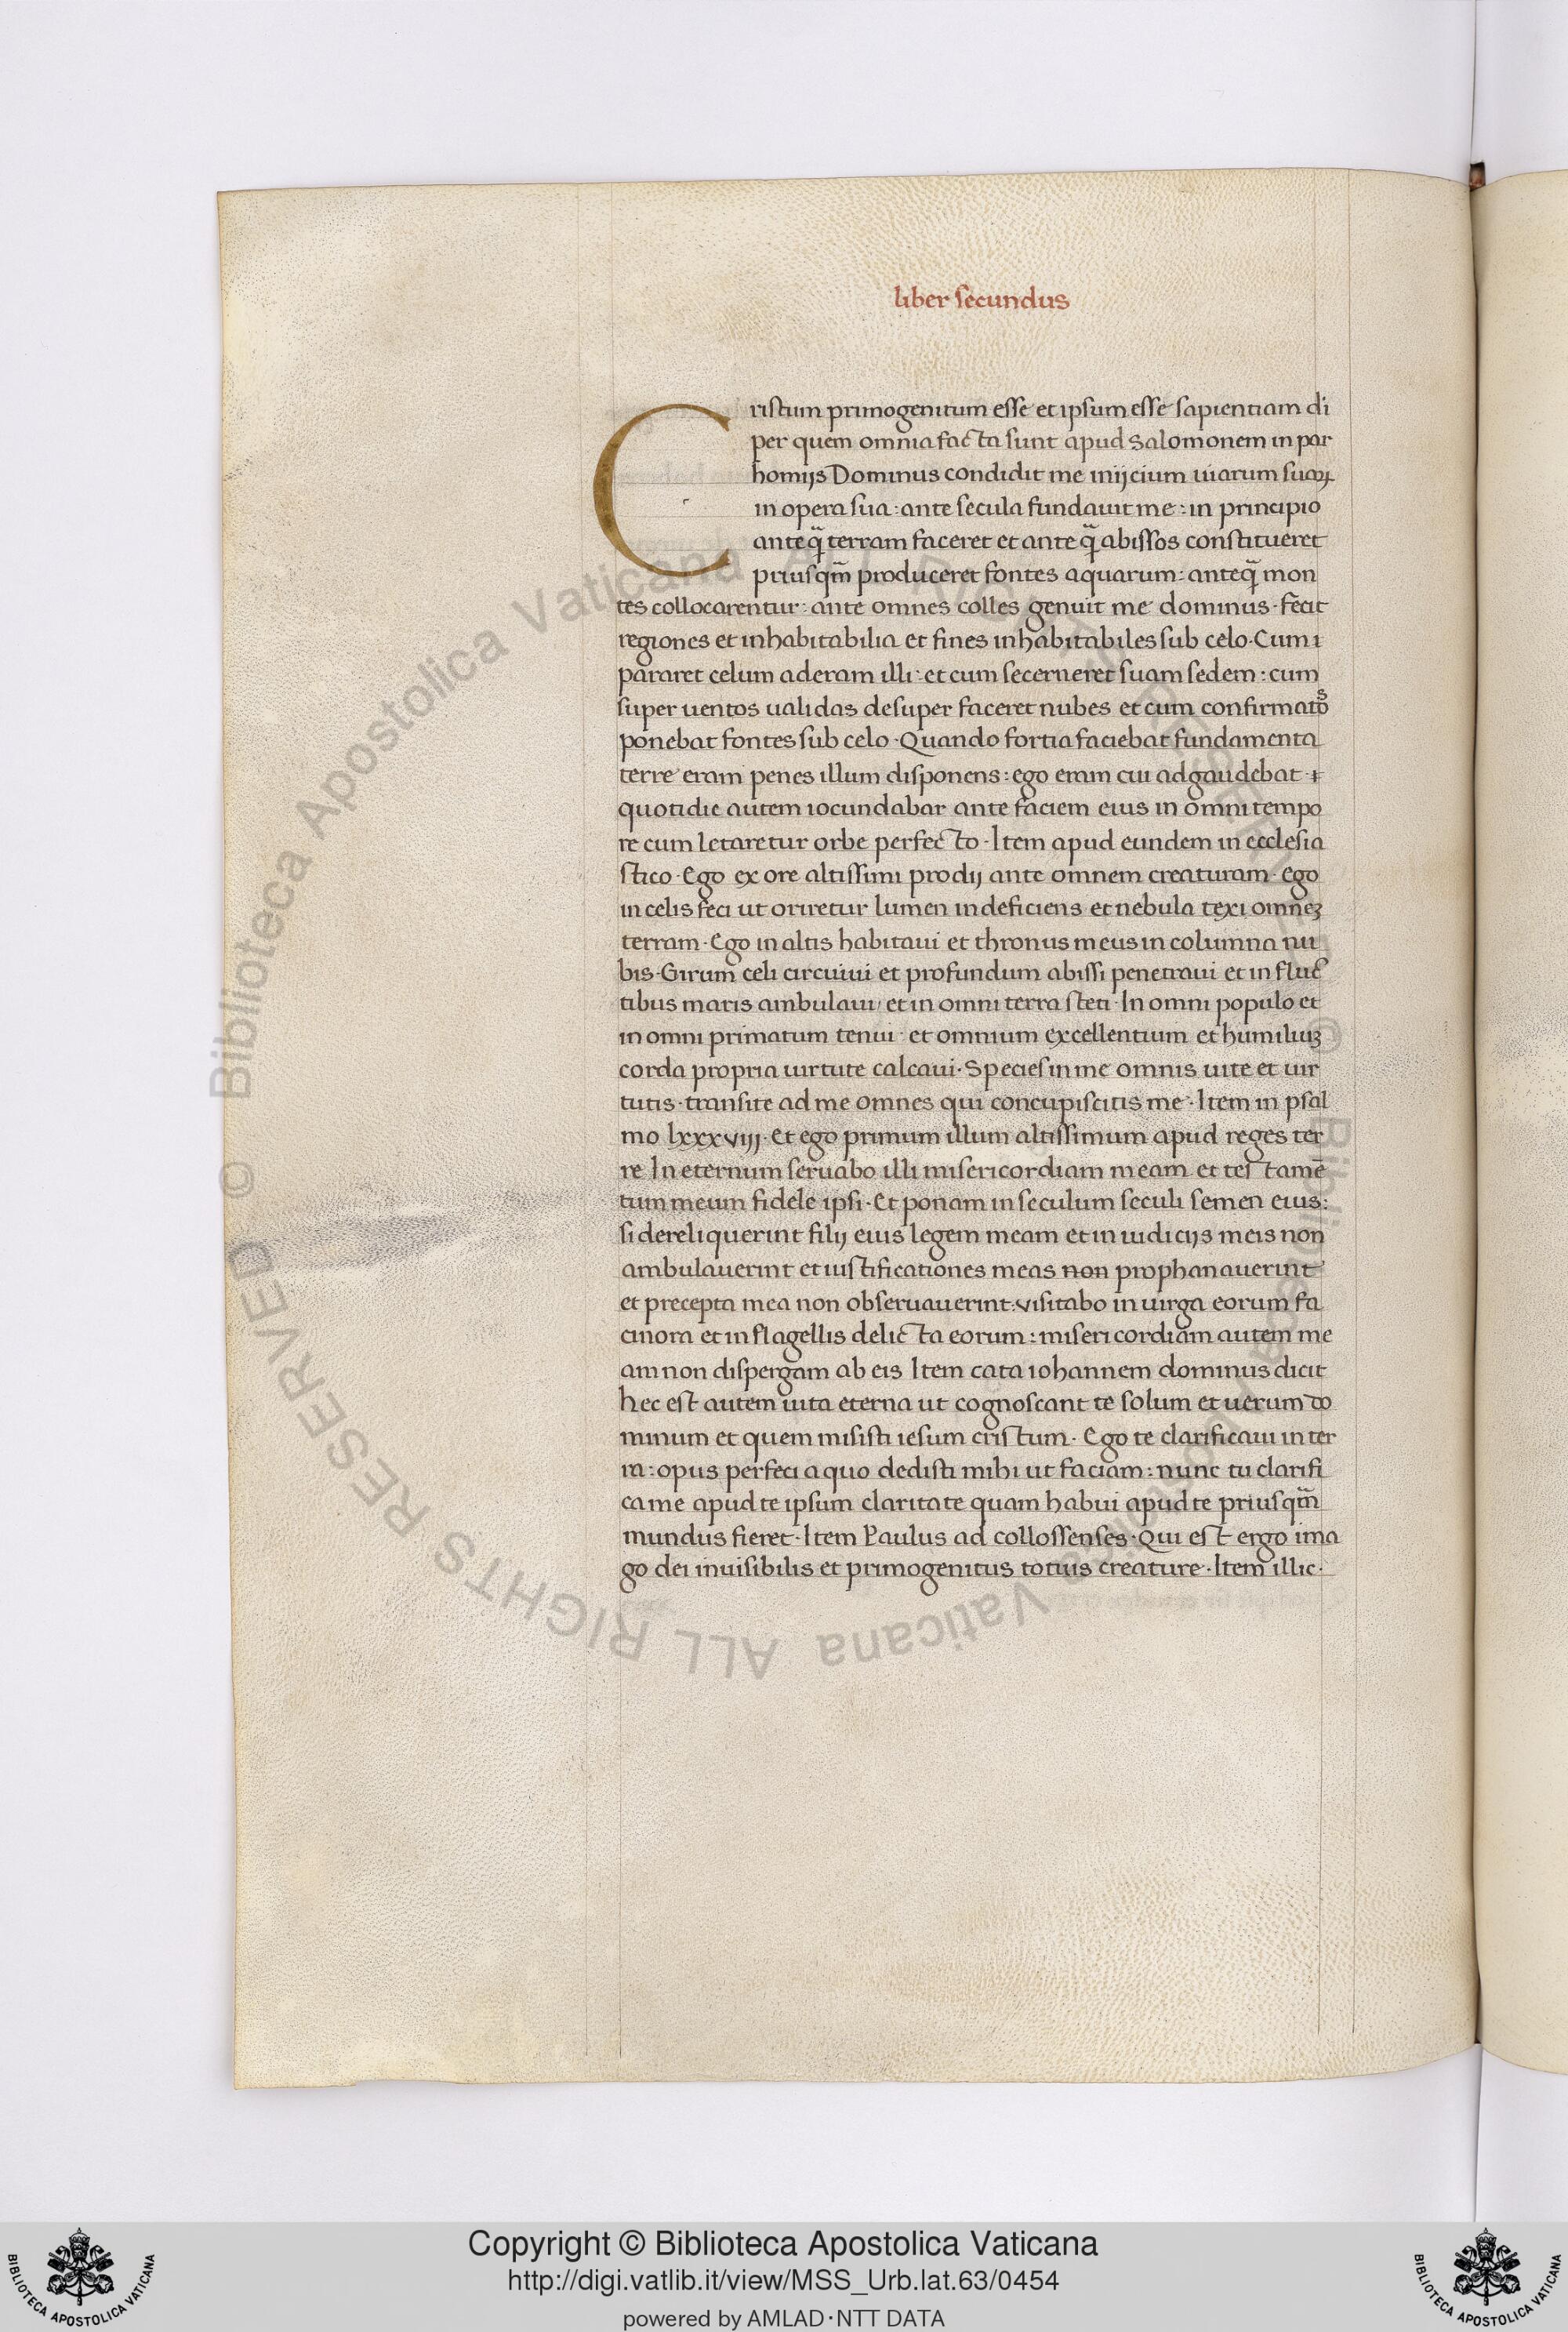 liber secundus
Cristum primogenitum esse et ipsum esse sapientiam di
per quem omnia facta sunt apud Salomonem in par
homijs Dominus condidit me inijcium uiarum suoꝝ
in opera sua: ante secula fundauit me: in principio
ante q̃ terram faceret et ante q̃ abissos constitueret
priusqm̃ produceret fontes aquarum: anteq̃ mon
tes collocarentur: ante omnes colles genuit me dominus· fecit
regiones et inhabitabilia et fines inhabitabiles sub celo· Cum
pararet celum aderam illi: et cum secerneret suam sedem: cum
super uentos ualidas desuper faceret nubes et cum confirmatos
ponebat fontes sub celo· Quando fortia faciebat fundamenta
terre eram penes illum disponens: ego eram cui adgaudebat·
quotidie autem iocundabar ante faciem eius in omni tempo
re cum letaretur orbe perfecto· Item apud eundem in ecclesia
stico· Ego ex ore altissimi prodij ante omnem creaturam· ego
in celis feci ut oriretur lumen indeficiens et nebula texi omneʒ
terram· Ego in altis habitaui et thronus meus in columna nu
bis· Girum celi circuiui et profundum abissi penetraui et in fluc
tibus maris ambulaui et in omni terra steti· In omni populo et
in omni primatum tenui· et omnium excellentium et humiliuʒ
corda propria uirtute calcaui· Species in me omnis uite et uir
tutis· transite ad me omnes qui concupiscitis me· Item in psal
mo lxxxviij· Et ego primum illum altissimum apud reges ter
re In eternum seruabo illi misericordiam meam et testamē
tum meum fidele ipsi· Et ponam in seculum seculi semen eius:
si dereliquerint filij eius legem meam et in iudicijs meis non
ambulauerint et iustificationes meas non prophanauerint
et precepta mea non obseruauerint: visitabo in uirga eorum fa
cinora et in flagellis delicta eorum: misericordiam autem me
am non dispergam ab eis Item cata iohannem dominus dicit
hec est autem uita eterna ut cognoscant te solum et uerum do
minum et quem misisti iesum cristum· Ego te clarificaui in ter
ra: opus perfeci a quo dedisti mihi ut faciam: nunc tu clarifi
ca me apud te ipsum claritate quam habui apud te priusqm̃
mundus fieret· Item Paulus ad collossenses· Qui est ergo ima
go dei inuisibilis et primogenitus totius creature· Item illic·
© Biblioteca Apostolica Vaticana ALL RIGHTS RESERVED
© Biblioteca Apostolica Vaticana ALL RIGHTS RESERVED
Copyright © Biblioteca Apostolica Vaticana
http://digi.vatlib.it/view/MSS_Urb.lat.63/0454
powered by AMLAD·NTT DATA
BIBLIOTECA APOSTOLICA VATICANA
BIBLIOTECA APOSTOLICA VATICANA